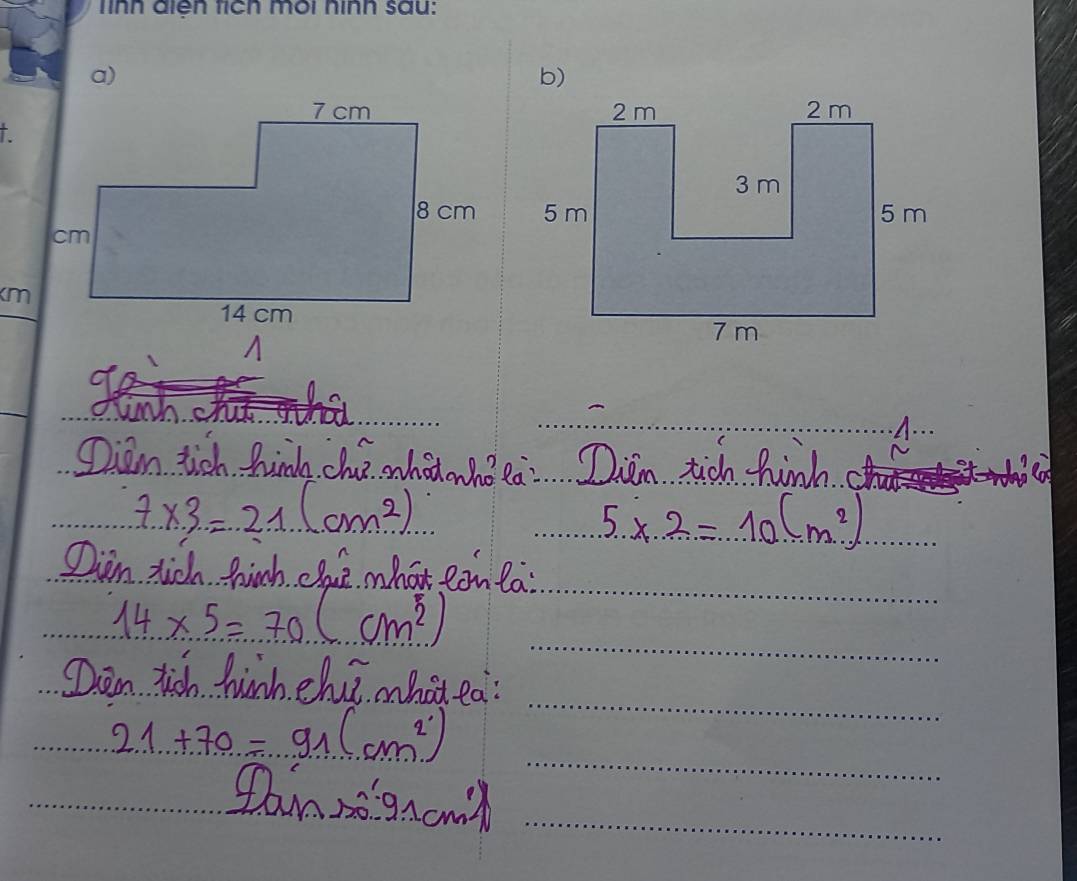 Tính diện tích mỗi hình sau:
a)
7 cm
8 cm
cm
14 cm
b)
2 m
2 m
3 m
5 m
5 m
7 m
t.
km
1
Hình chữ nhật
Diện tích hình chữ nhật nhỏ là:
7 x 3 = 21 (cm²)
Diện tích hình chữ nhật lớn là:
14 x 5 = 70 (cm²)
Diện tích hình chữ nhật là:
21 + 70 = 91 (cm²)
Đán số: 91 cm²
1
Diện tích hình
5 x 2 = 10 (m²)